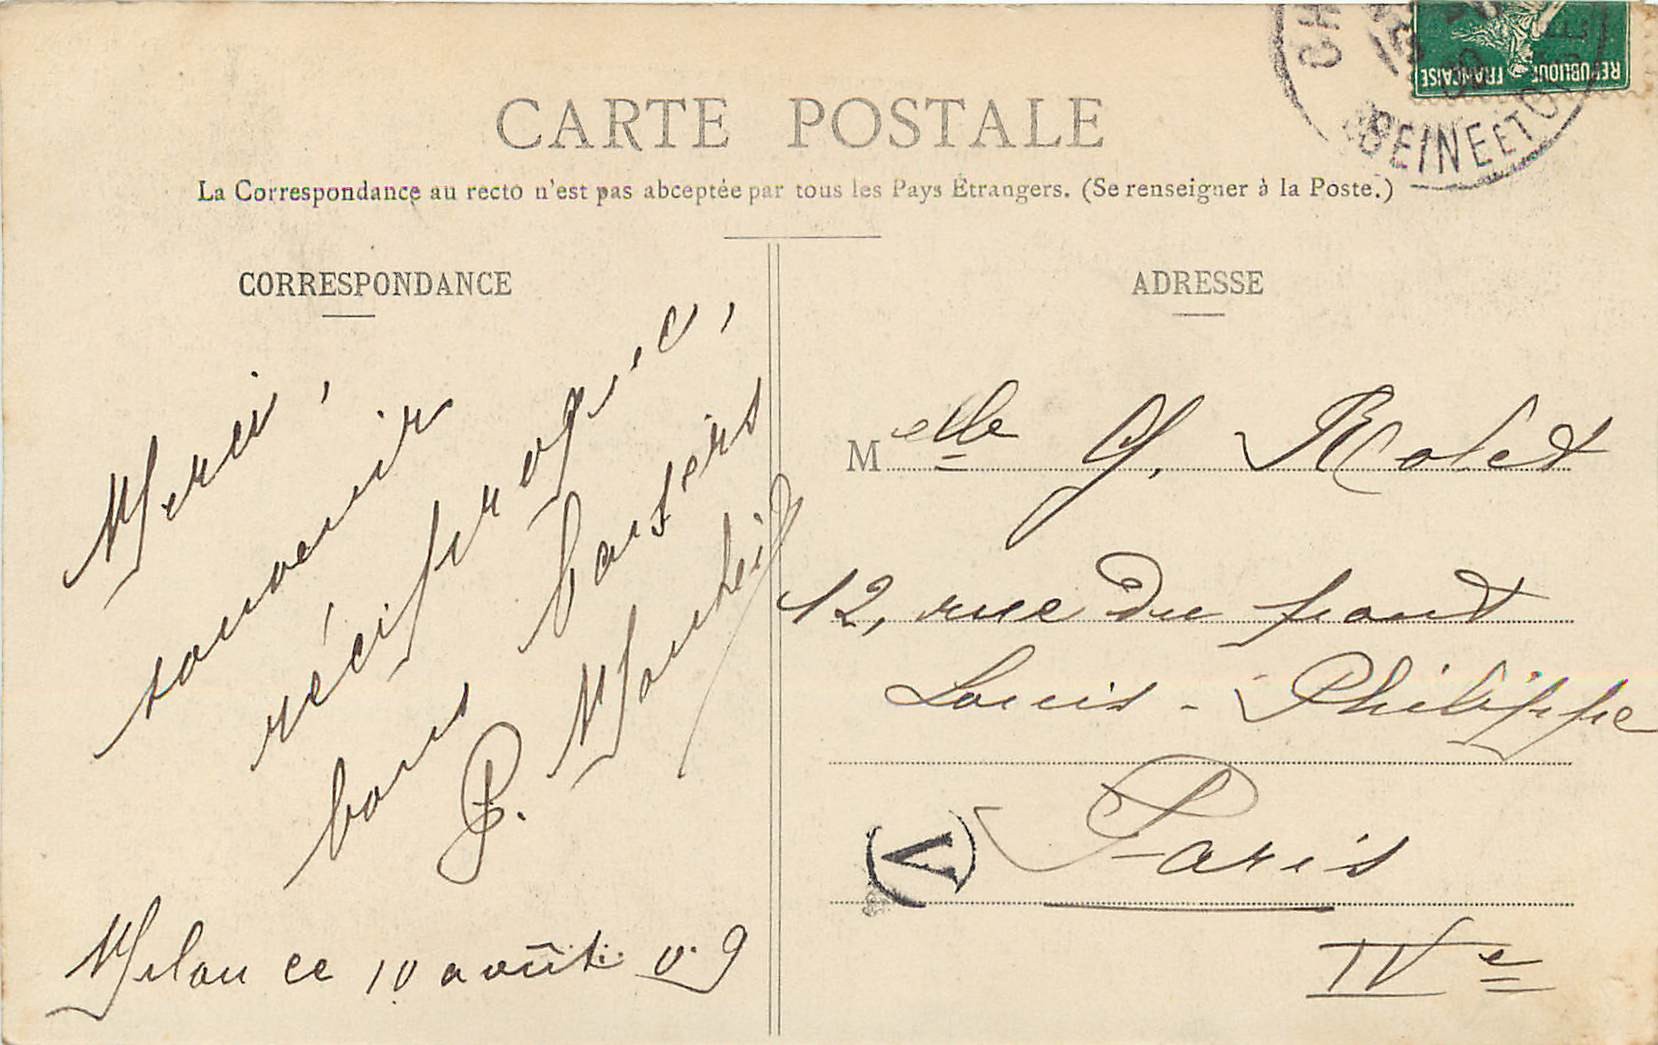 CARTE POSTALE
La Correspondance au recto n'est pas abceptée par tous les Pays Étrangers. (Se renseigner à la Poste.)
CORRESPONDANCE
Merci,
souvenir
réciproque,
bons baisers
P.
Milan ce 10 août 09
ADRESSE
Melle G. Rolet
12, rue du pont
Louis-Philippe
Paris
IVe
REPUBLIQUE FRANÇAISE
CH
SEINE ET O
(V)